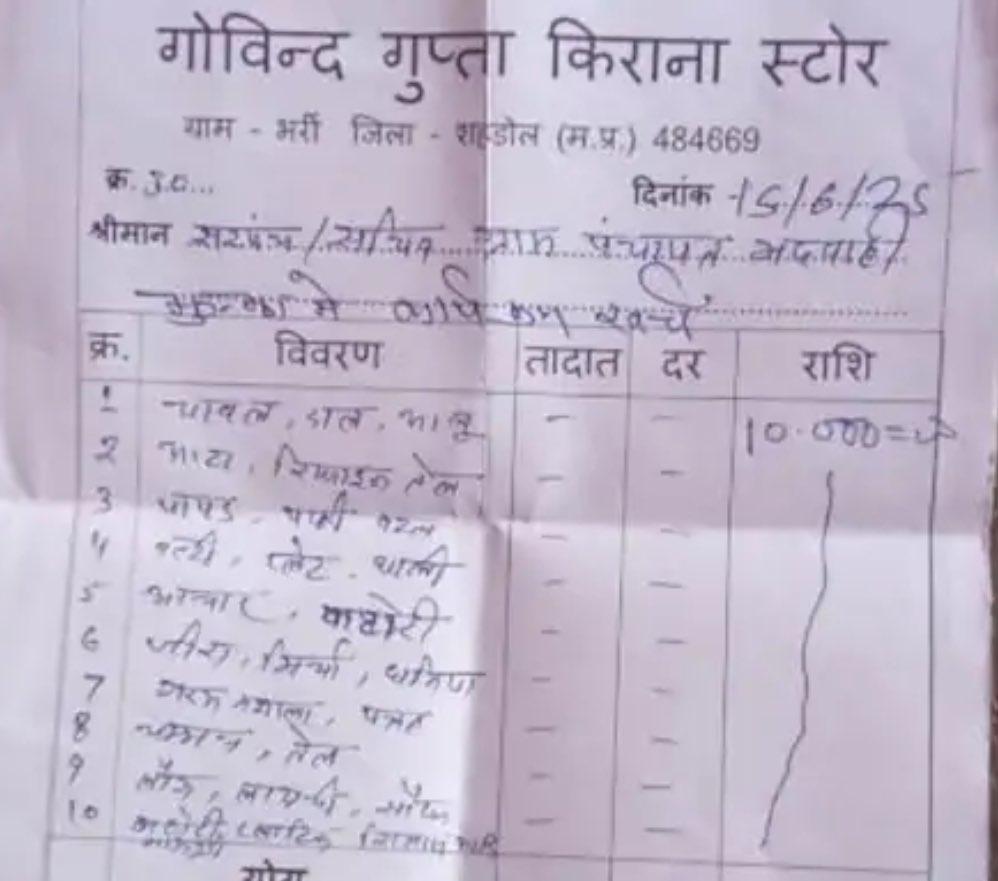 गोविन्द गुप्ता किराना स्टोर
ग्राम - भर्री जिला - शहडोल (म.प्र.) 484669
क्र. 30...
दिनांक 15/6/25
श्रीमान सरपंच/सचिव ग्राम पंचायत भदवाही
मे खर्च
क्र. विवरण तादात दर राशि
1 चावल, दाल, आलू - - 10.000=00
2 आटा, रिफाइन तेल - -
3 पापड़ - -
4 प्लेट, थाली - -
5 अचार, कटोरी - -
6 जीरा, मिर्चा, धनिया - -
7 गरम मसाला, - -
8 तेल - -
9 लौंग, लायची, सौंफ - -
10 - -
योग